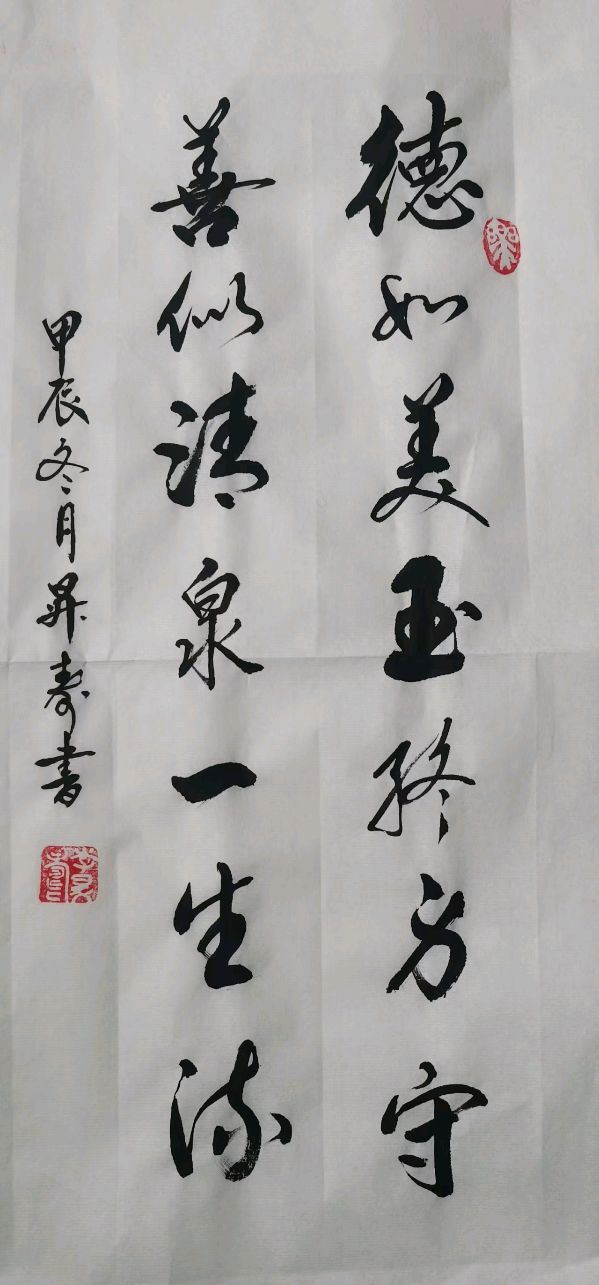 德如美玉终身守
善似清泉一生流
甲辰冬月昇寿书